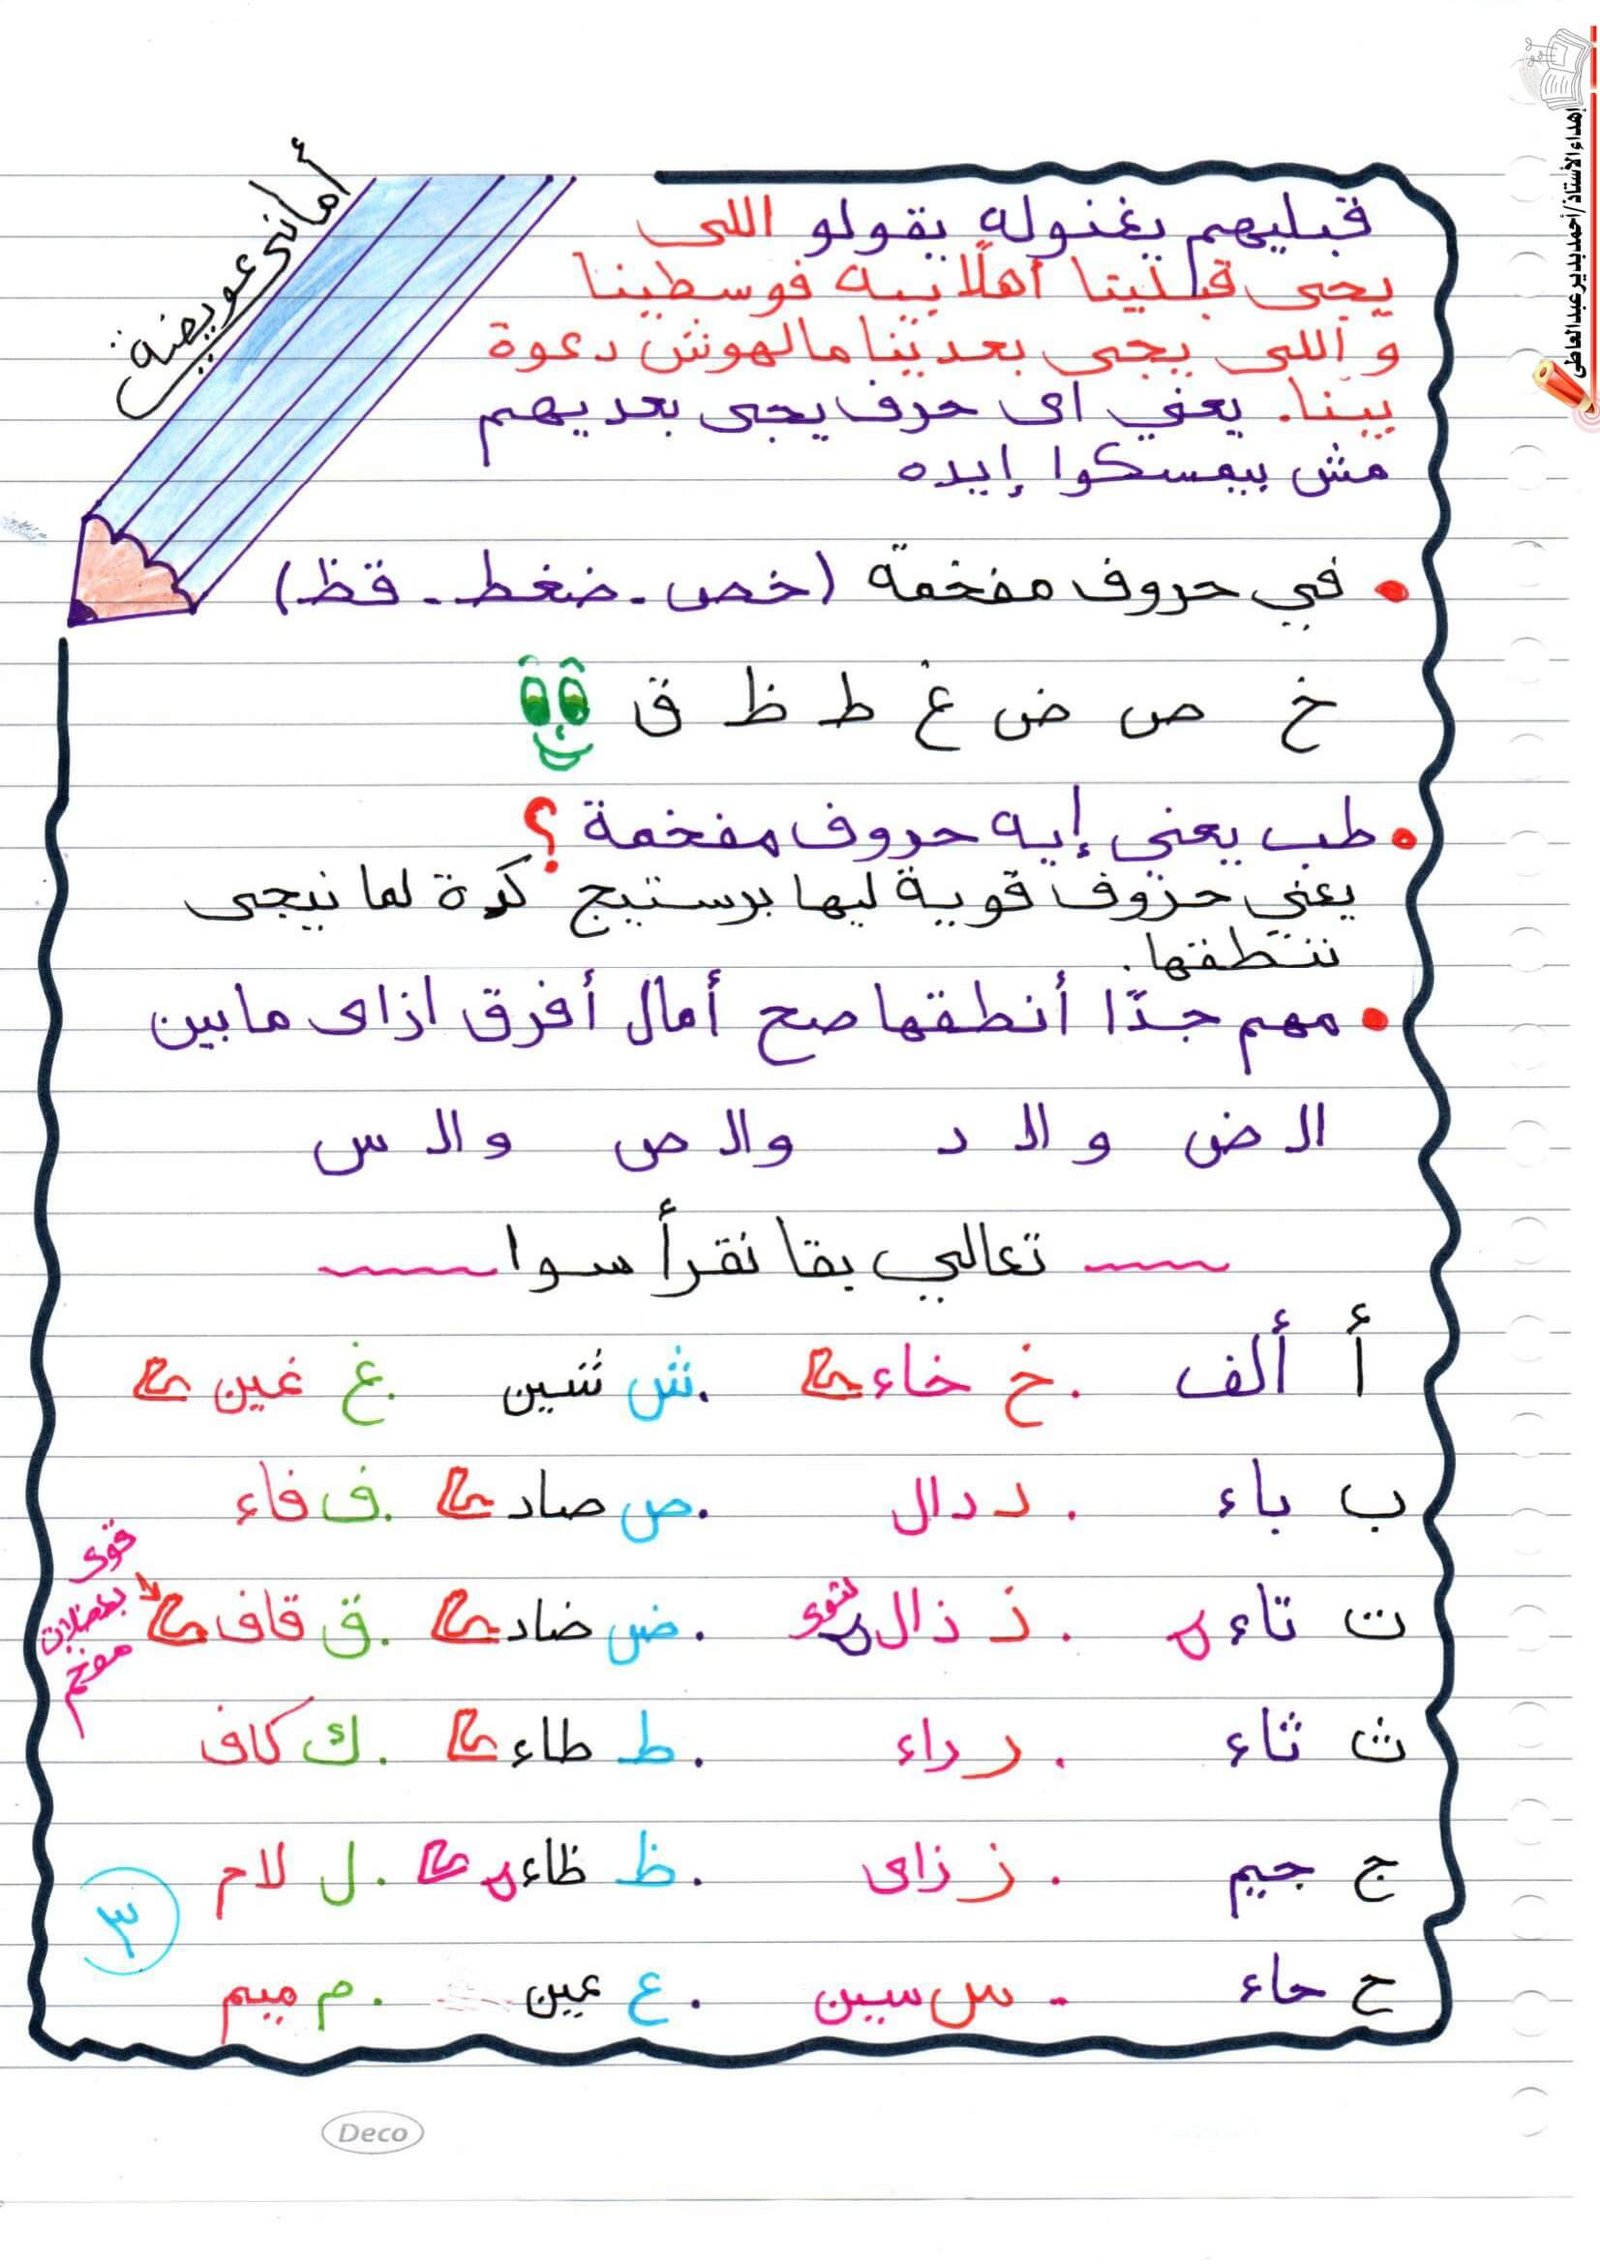 إهداء الأستاذ/أحمد بدير عبدالعاطى
أمانى عويضة
قبليهم يغنوله يقولو اللى
يجى قبلينا أهلا بيه فوسطينا
و اللى يجى بعدينا مالهوش دعوة
بينا. يعنى اى حرف يجى بعديهم
مش بيمسكوا إيده
• في حروف مفخمة (خص - ضغط - قظ)
خ ص ض غ ط ظ ق
• طب يعنى إيه حروف مفخمة ؟
يعنى حروف قوية ليها برستيج كدة لما نيجى
ننطقها.
• مهم جدًا أنطقها صح أمال أفرق ازاى مابين
الـ ض و الـ د والـ ص و الـ س
تعالي بقا نقرأ سوا
أ ألف . خ خاء . ش شين . غ غين
ب باء . د دال . ص صاد . ف فاء
ت تاء . ذ ذال لثوى . ض ضاد . ق قاف
قوى
بعضلات
مفخم
ث ثاء . ر راء . ط طاء . ك كاف
ج جيم . ز زاى . ظ ظاء . ل لام
ح حاء - س سين . ع عين . م ميم
٣
Deco